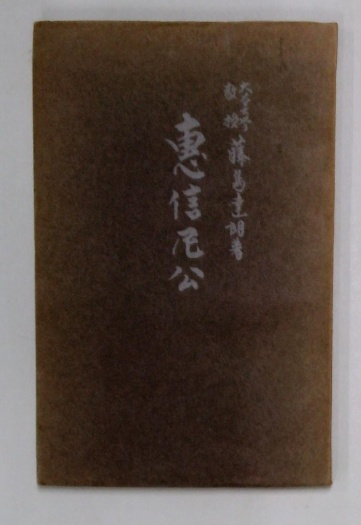 大谷大学
教授 藤島達朗著
惠信尼公